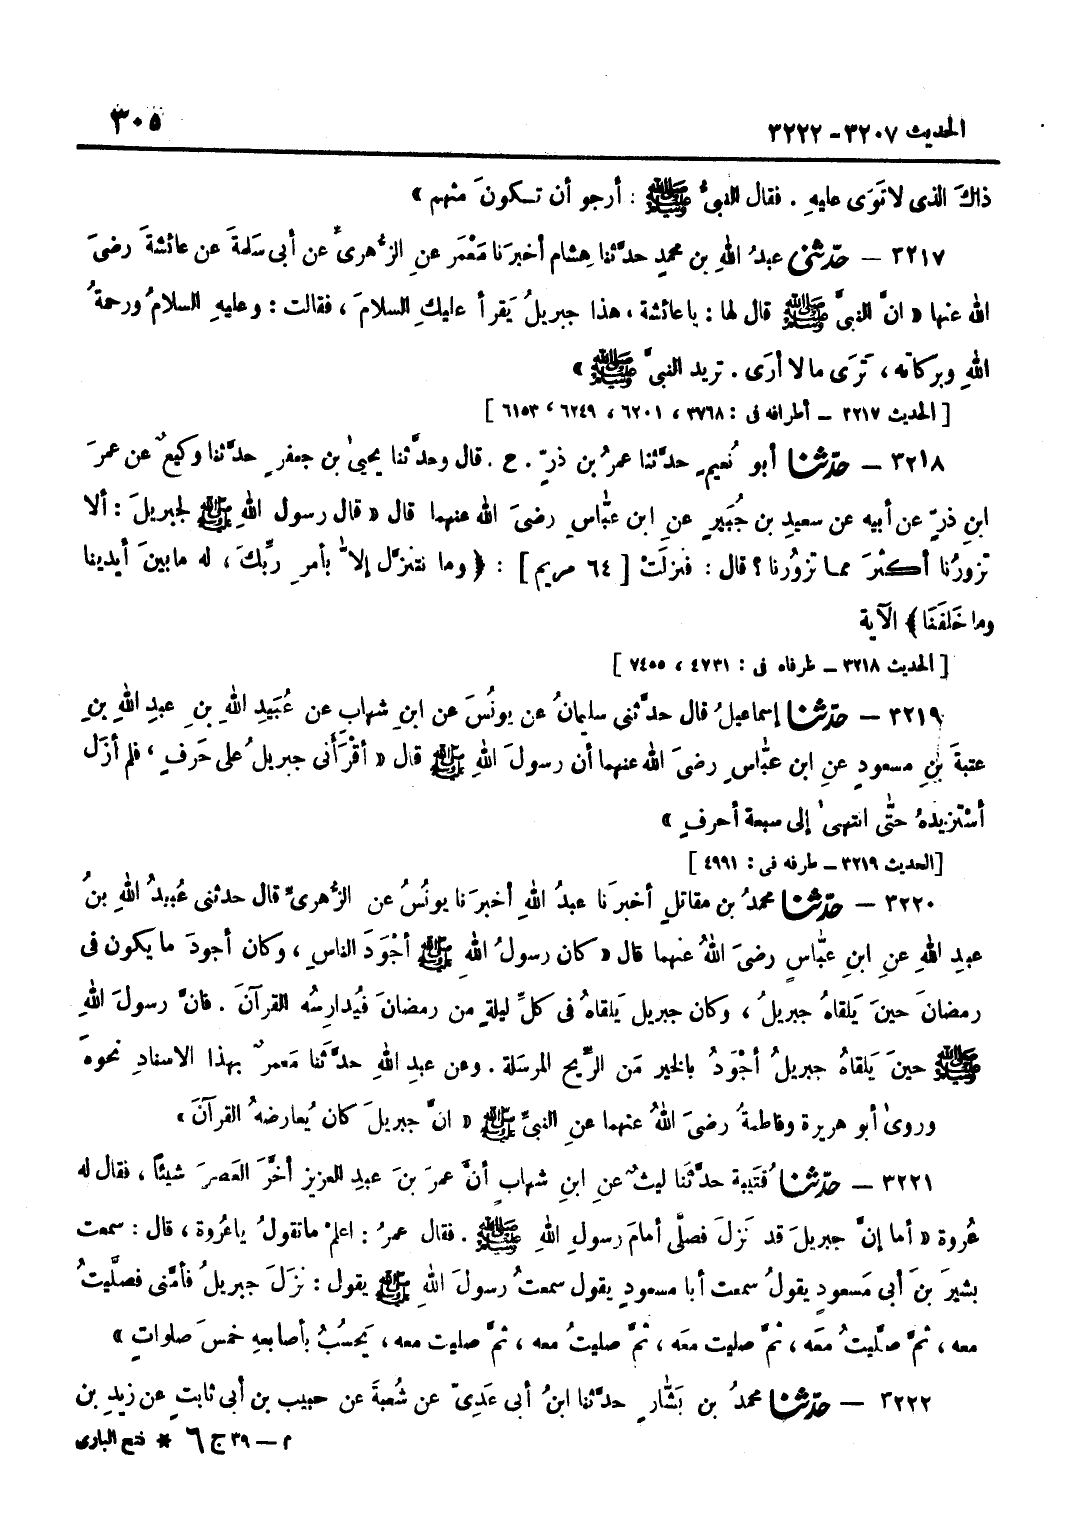 الحديث ٣٢٠٧ – ٣٢٢٢
٣٠٥
ذاكَ الذى لا تَوَى عليهِ . فقال النبىُّ ﷺ : أرجو أن تكونَ منهم »
٣٢١٧ – حدّثنى عبدُ اللهِ بن محمدٍ حدَّثنا هِشام أخبرَنا مَعْمَر عنِ الزُّهرىِّ عن أبى سَلمةَ عن عائشةَ رضىَ
الله عنها « انَّ النبىَّ ﷺ قال لها : ياعائشة ، هذا جبريلُ يَقرأ عليكِ السلامَ ، فقالت : وعليهِ السلامُ ورحمةُ
اللهِ وبركاته ، تَرَى مالا أرَى . تريد النبىَّ ﷺ »
[ الحديث ٣٢١٧ – أطرافه فى : ٣٧٦٨ ، ٦٢٠١ ، ٦٢٤٩ ، ٦١٥٣ ]
٣٢١٨ – حدّثنا أبو نُعيمٍ حدَّثنا عمرُ بن ذرٍّ . ح . قال وحدَّثنا يحيىٰ بن جعفرٍ حدَّثنا وكيعٌ عن عمرَ
ابنِ ذرٍّ عن أبيه عن سعيدِ بن جُبَيرٍ عنِ ابن عبَّاسٍ رضىَ الله عنهما قال « قال رسول اللهِ ﷺ لجبريلَ : ألا
تزورُنا أكثرَ مما تزورُنا ؟ قال : فنزلَتْ [ ٦٤ مريم ] : ﴿ وما نتنزَّل إلاَّ بأمرِ ربِّك ، له مابينَ أيدينا
وما خَلفَنا ﴾ الآية
[ الحديث ٣٢١٨ – طرفاه فى : ٤٧٣١ ، ٧٤٥٥ ]
٣٢١٩ – حدّثنا إسماعيلُ قال حدَّثنى سليمانُ عن يونُسَ عن ابنِ شهاب عن عُبَيدِ اللهِ بنِ عبدِ اللهِ بنِ
عتبةَ بنِ مسعودٍ عنِ ابن عبَّاسٍ رضىَ الله عنهما أن رسولَ اللهِ ﷺ قال « أقْرَأَنى جبريلُ على حَرفٍ ، فلم أزَل
أسْتزيدهُ حتَّى انتهىٰ إلى سبعة أحرفٍ »
[الحديث ٣٢١٩ – طرفه فى : ٤٩٩١ ]
٣٢٢٠ – حدّثنا محمدُ بن مقاتلٍ أخبرَنا عبدُ اللهِ أخبرَنا يونُسُ عن الزُّهرىِّ قال حدثنى عُبيدُ اللهِ بنُ
عبدِ اللهِ عنِ ابنِ عبَّاسٍ رضىَ اللهُ عنهما قال « كان رسولُ اللهِ ﷺ أجْوَدَ الناسِ ، وكان أجودَ ما يكون فى
رمضانَ حينَ يَلقاهُ جبريلُ ، وكان جبريل يَلقاهُ فى كلِّ ليلةٍ من رمضانَ فيُدارِسُه القرآنَ . فانَّ رسولَ اللهِ
ﷺ حينَ يَلقاهُ جبريلُ أجْوَدُ بالخير مَن الرِّيح المرسَلة . وعن عبدِ اللهِ حدَّثَنا مَعمرٌ بهذا الاسنادِ نحوهَ
وروىٰ أبو هريرة وفاطمةُ رضىَ اللهُ عنهما عنِ النبىِّ ﷺ « انَّ جبريلَ كان يُعارضهُ القرآنَ »
٣٢٢١ – حدّثنا قُتَيبة حدَّثَنا ليثٌ عنِ ابنِ شهابٍ أنَّ عمرَ بنَ عبدِ العزيز أخَّرَ العَصرَ شيئًا ، فقال له
عُروة « أما إنَّ جبريلَ قد نَزلَ فصلَّى أمامَ رسولِ اللهِ ﷺ . فقال عمرُ : اعلمْ ماتقولُ ياعُروة ، قال : سمعت
بشيرَ بنَ أبى مَسعودٍ يقولُ سمعت أبا مسعودٍ يقول سمعتُ رسولَ اللهِ ﷺ يقول : نزَلَ جبريلُ فأمَّنى فصلَّيتُ
معه ، ثمَّ صلَّيتُ مَعه ، ثمَّ صليت معَه ، ثمَّ صليتُ معه ، ثمَّ صليت معه ، يَحسُبُ بأصابعهِ خمسَ صلواتٍ »
٣٢٢٢ – حدّثنا محمدُ بن بَشَّارٍ حدَّثنا ابنُ أبى عَدِىّ عن شُعبةَ عن حبيب بن أبى ثابتٍ عن زيدِ بن
م – ٣٩ ج ٦ * فتح البارى